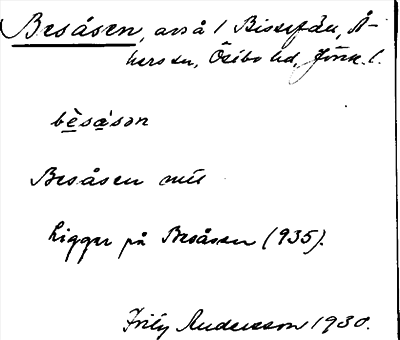 Besåsen, avs å / Bissefäll, Å-
kers sn, Östbo hd, Jönk. l.
bèsåsən
Besåsen
Ligger på Besåsen (935).
Frily Andersson 1930.